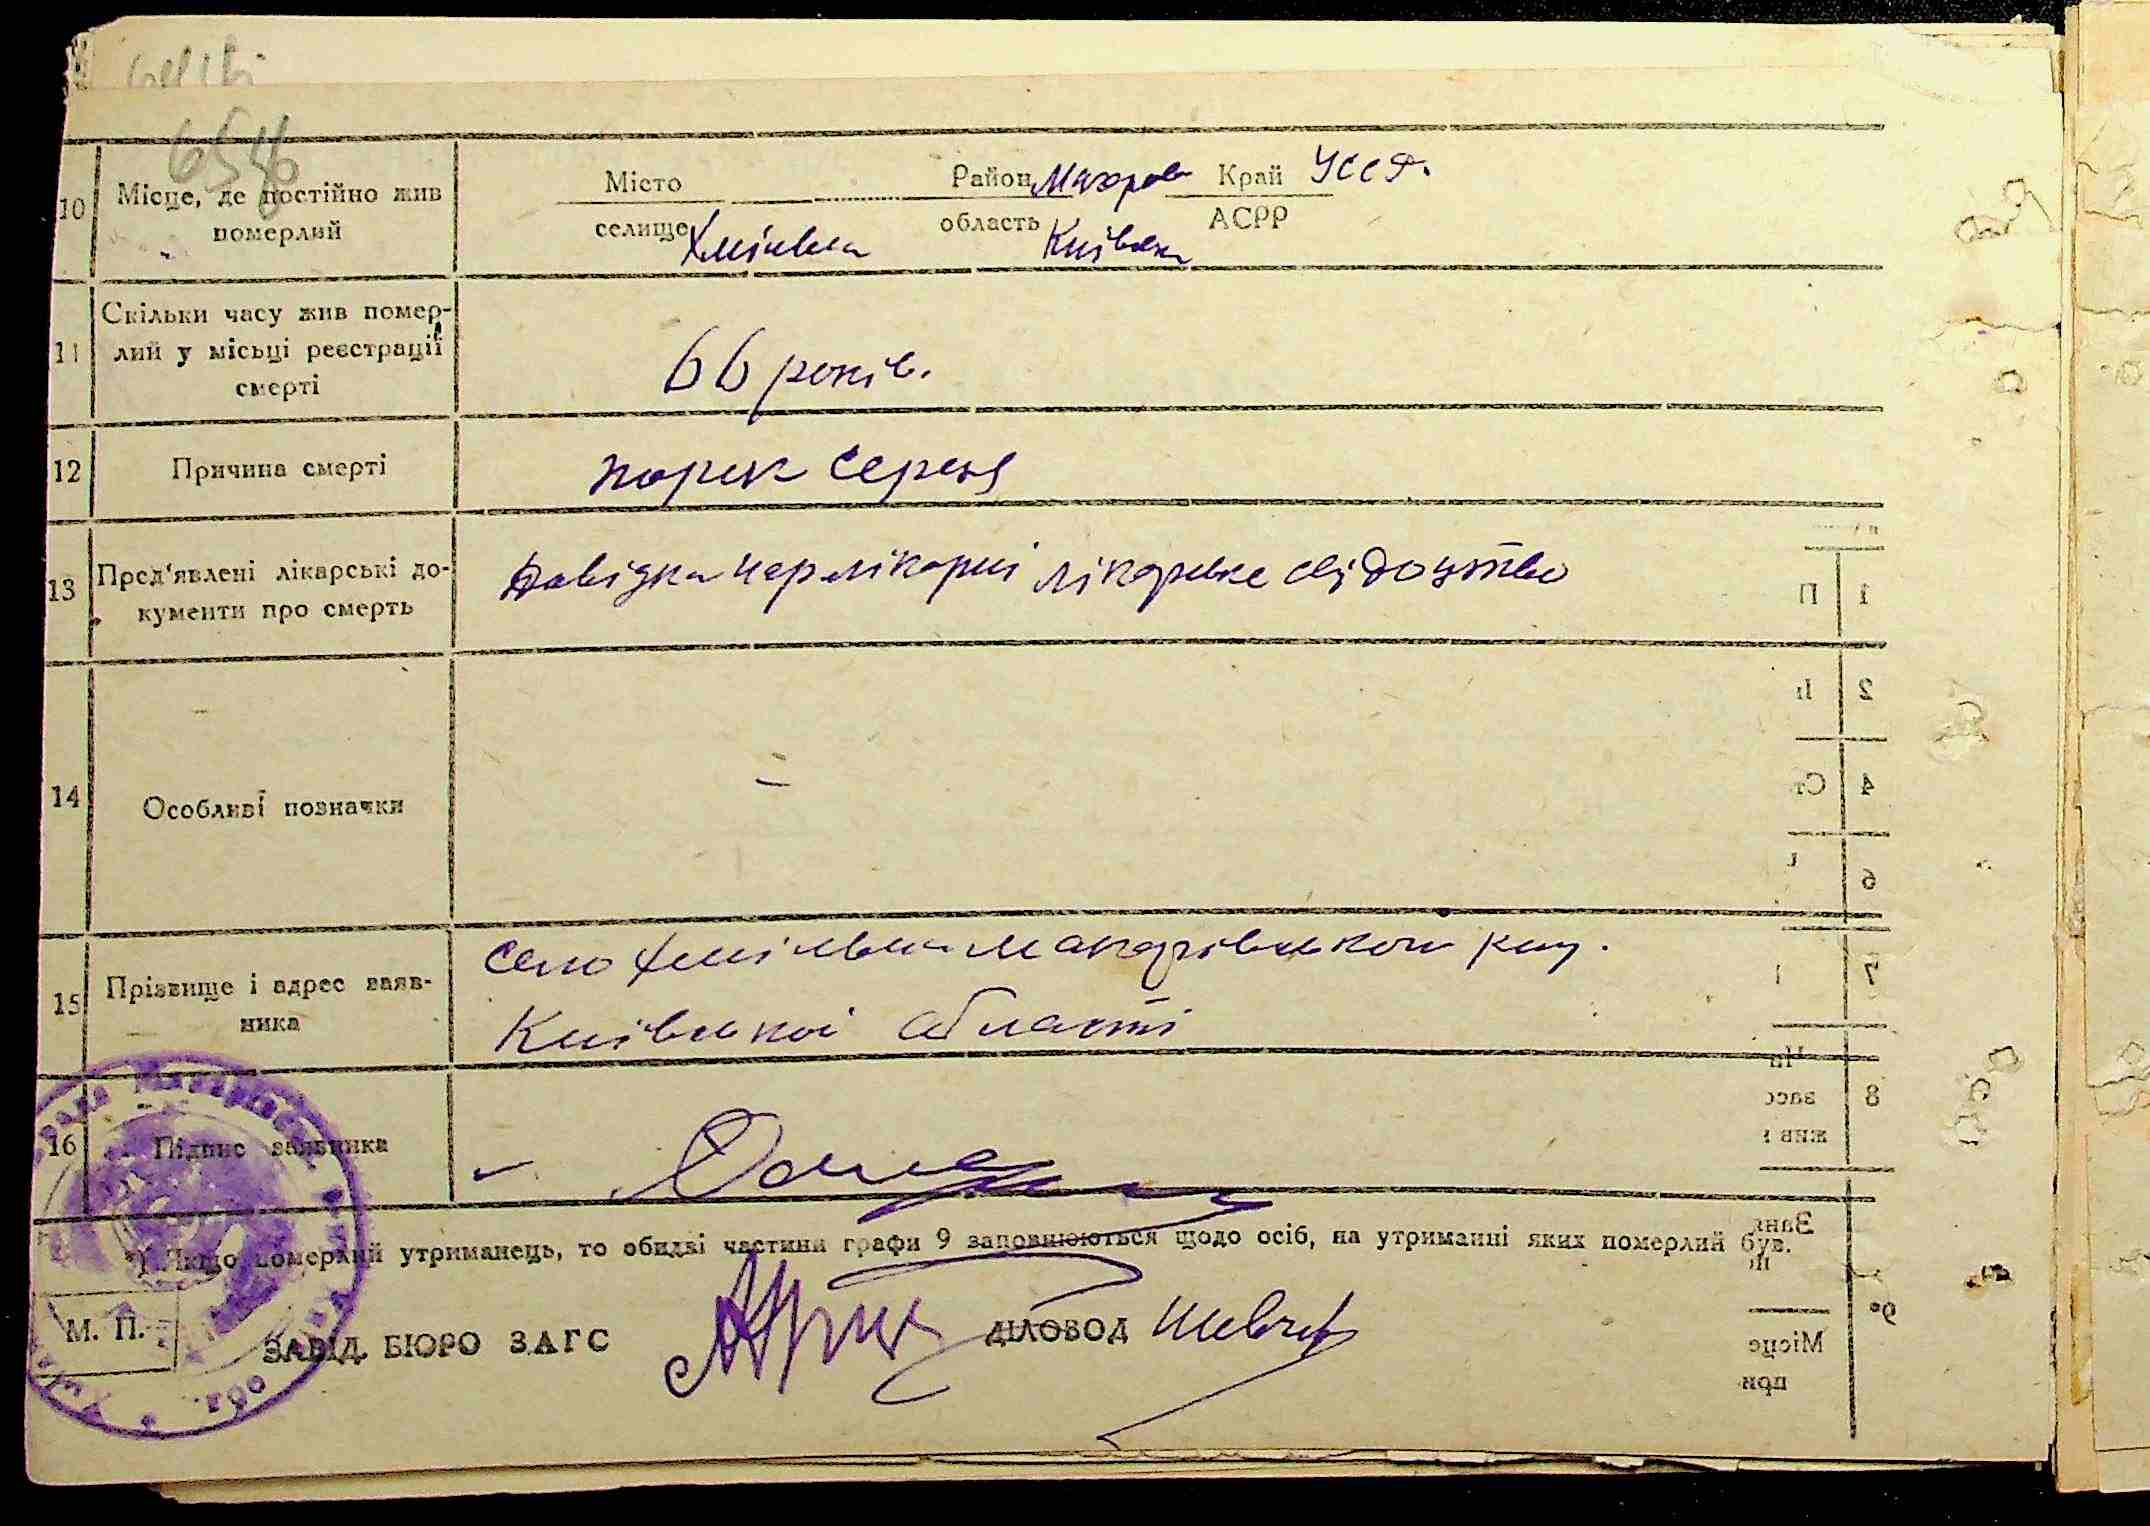 656
10 Місце, де постійно жив
померлий
Місто
селище Хмільна
Район Макарів
область Київська
Край УССР.
АСРР
11 Скільки часу жив помер-
лий у місьці реєстрації
смерті
66 років.
12 Причина смерті
порок серця
13 Пред'явлені лікарські до-
кументи про смерть
Довідка лікарні лікарське свідоцтво
14 Особливі позначки
–
15 Прізвище і адрес заяв-
ника
село Хмільна Макарівського рну.
Київської області
16 Підпис заявника
*) Якщо померлий утриманець, то обидві частини графи 9 заповнюються щодо осіб, на утриманні яких померлий був.
М. П.
ЗАВІД. БЮРО ЗАГС
ДІЛОВОД Шевчу
обл.